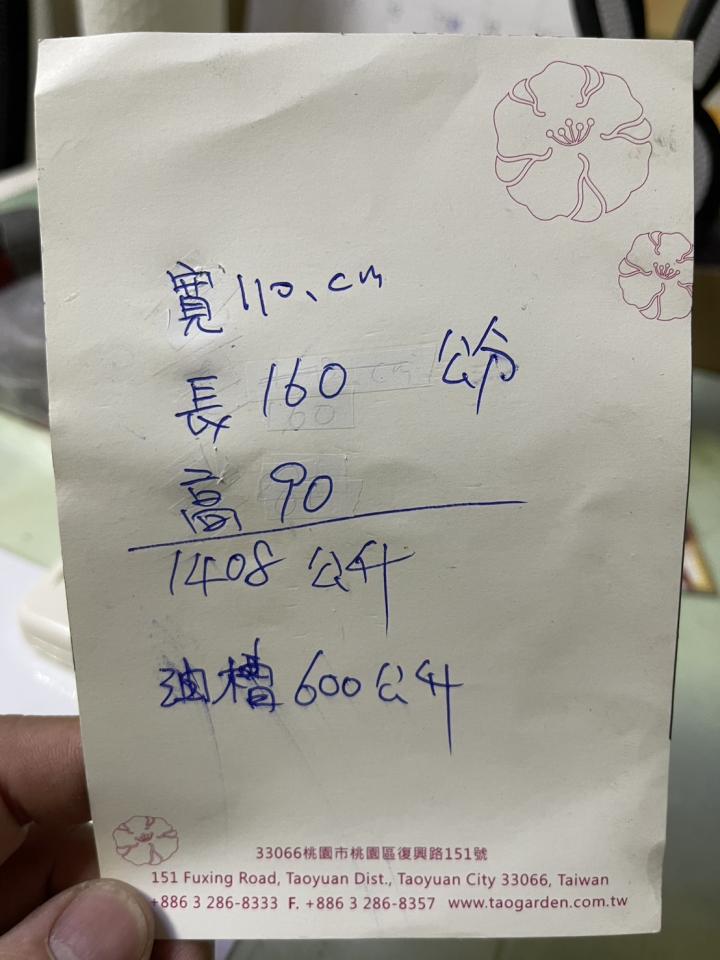 寬 110、cm
長 160 公分
高 90
1408 公升
油槽 600 公升
33066桃園市桃園區復興路151號
151 Fuxing Road, Taoyuan Dist., Taoyuan City 33066, Taiwan
+886 3 286-8333 F. +886 3 286-8357 www.taogarden.com.tw